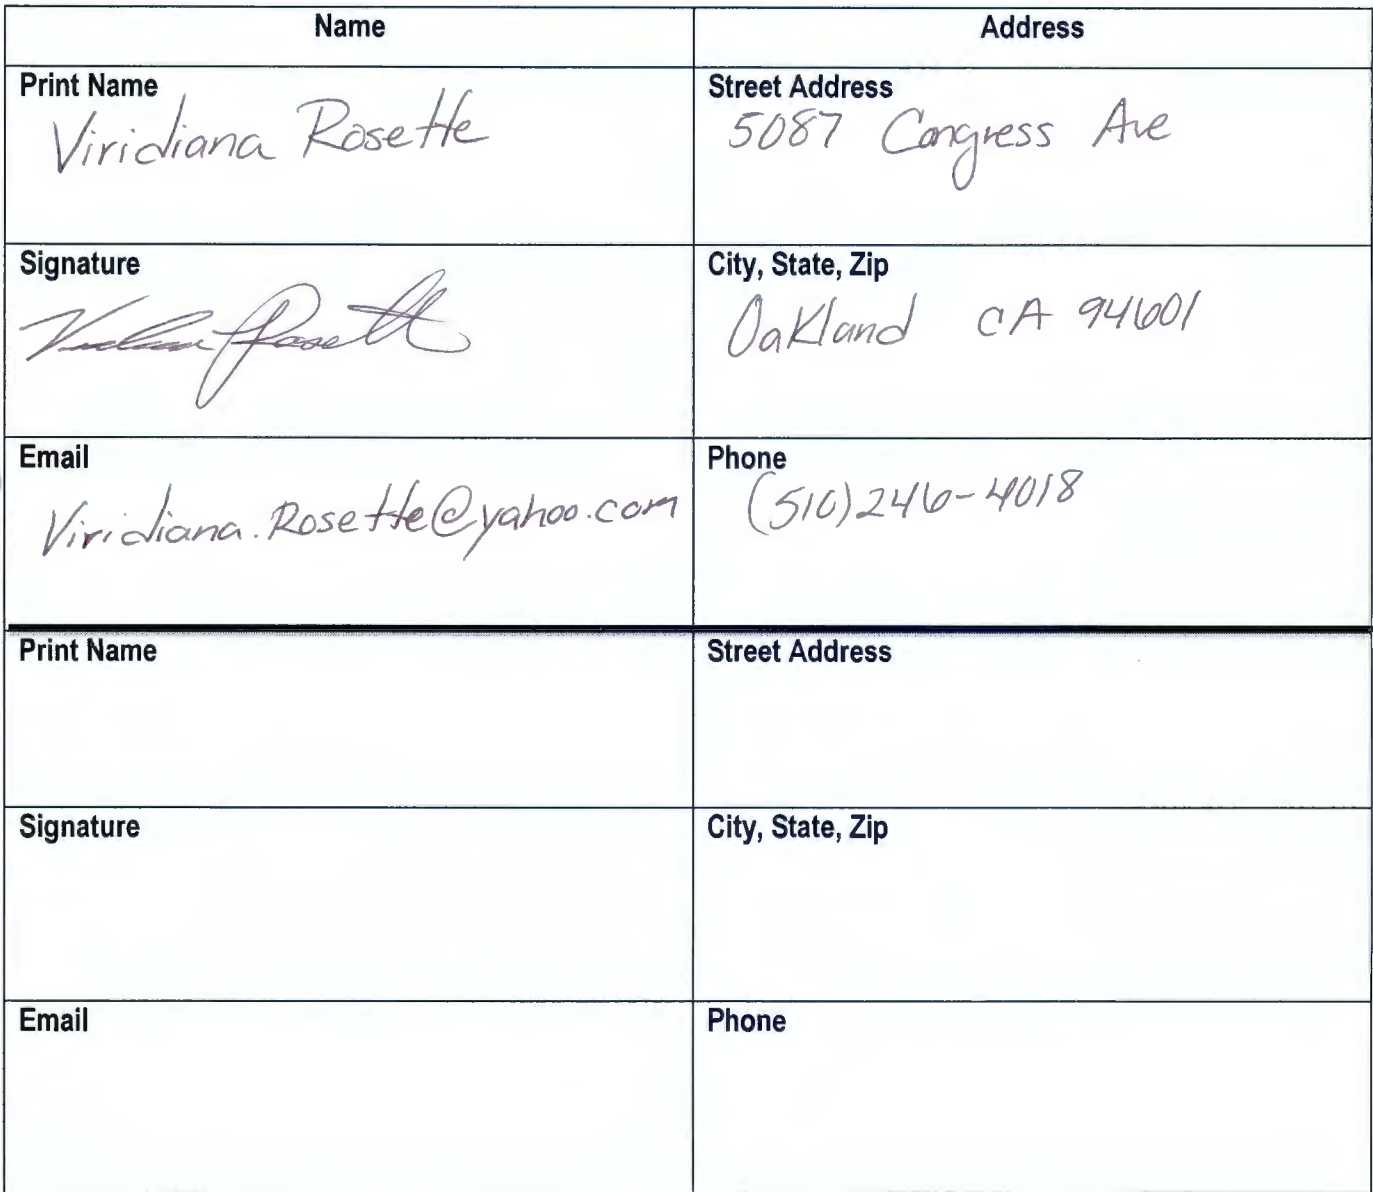 Name
Address
Print Name
Viridiana Rosette
Street Address
5087 Congress Ave
Signature
Viridiana Rosette
City, State, Zip
Oakland CA 94601
Email
Viridiana.Rosette@yahoo.com
Phone
(510)246-4018
Print Name
Street Address
Signature
City, State, Zip
Email
Phone